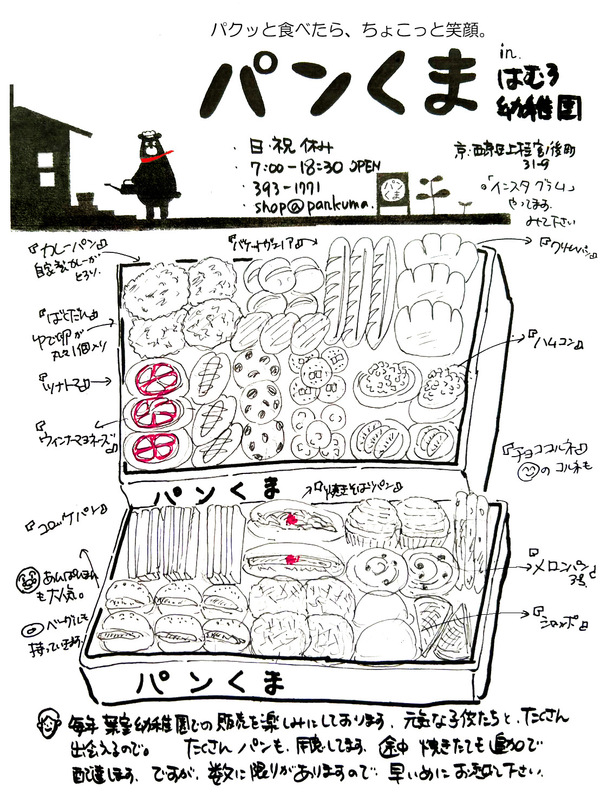 パクッと食べたら、ちょこっと笑顔。
パンくま
in.
はむろ
幼稚園
・日・祝 休み
・7:00-18:30 OPEN
・393-1771
・shop@pankuma.
京・西京区上桂宮ノ後町
31-9
「インスタグラム」
やってます。
みて下さい
パンくま
『カレーパン』
自家製カレーが
とろり。
『ばくだん』
ゆで卵が
丸々1個入り
『ツナトマ』
『ウィンナーマヨネーズ』
『クリームパン』
『ハムコン』
『チョココルネ』
のコルネも
パンくま
『焼きそばパン』
『コロッケパン』
あんぱんまん
も大人気。
ベーグルも
持っていきます。
『メロンパン』
『ショッポ』
パンくま
毎年 葉室幼稚園での販売を楽しみにしております。元気な子供たちと、たくさん
出会えるので。 たくさんパンも、用意してます。途中 焼きたても追加で
配達します。ですが、数に限りがありますので 早いめにお越し下さい。